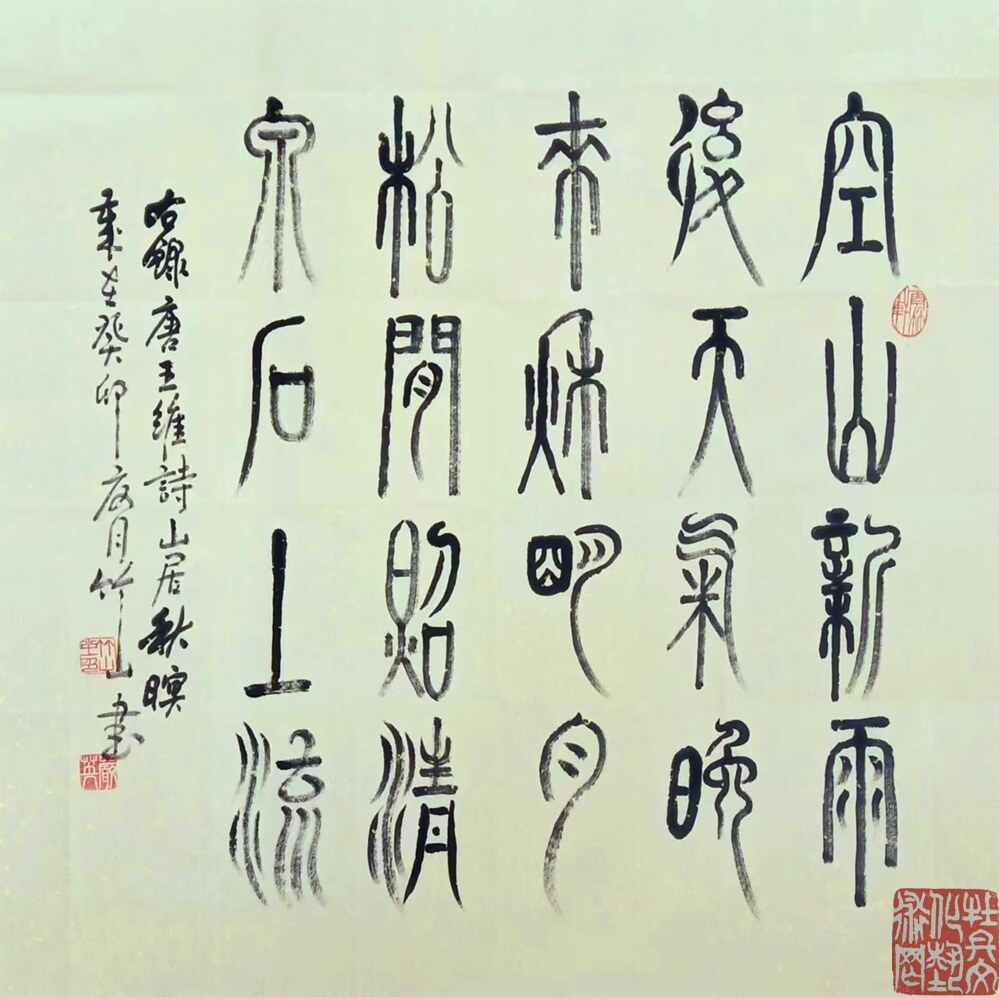 空山新雨
後天氣晚
來秋明月
松間照清
泉石上流
右錄唐王維詩山居秋暝
歲在癸卯夜月竹山書
竹山